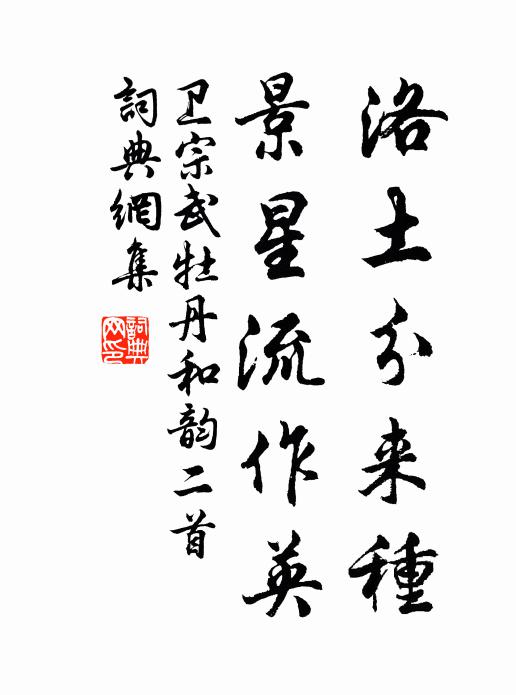 洛土分来種
景星流作英
卫宗武牡丹和韵二首
詞典網集
詞典網印